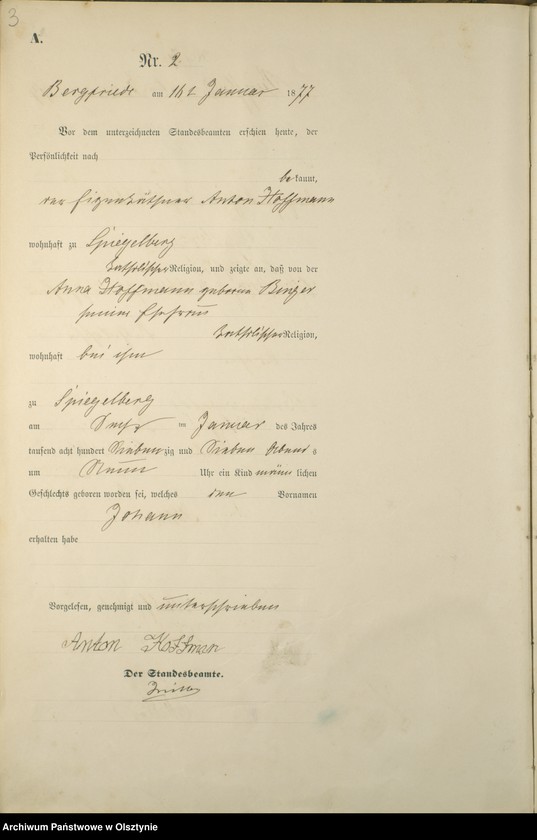 3
A.
Nr. 2
Bergfriede am 11t Januar 1877
Vor dem unterzeichneten Standesbeamten erschien heute, der
Persönlichkeit nach
bekannt,
der Eigenkäthner Anton Hoffmann
wohnhaft zu Spiegelberg
katholischer Religion, und zeigte an, daß von der
Anna Hoffmann geborene
seiner Ehefrau
katholischer Religion,
wohnhaft bei ihm
zu Spiegelberg
am Januar des Jahres
tausend acht hundert Siebenzig und Sieben Abends
um Neun Uhr ein Kind männlichen
Geschlechts geboren worden sei, welches den Vornamen
Johann
erhalten habe
Vorgelesen, genehmigt und unterschrieben
Anton Hoffman
Der Standesbeamte.
Archiwum Państwowe w Olsztynie